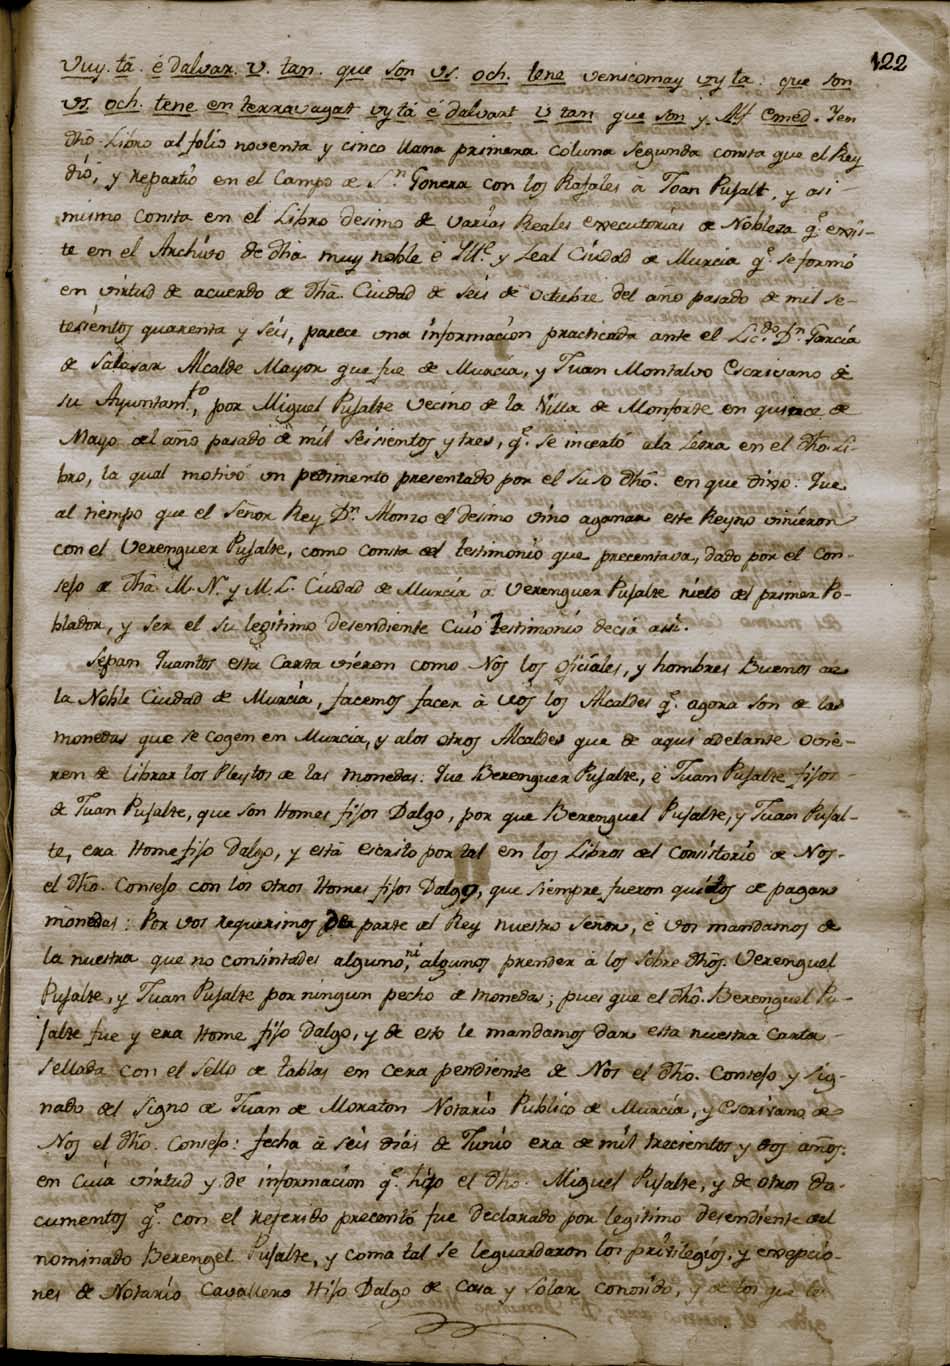 122
vuy. tā. é dalvar. v. tan. que son vs. och. tene venicomay vy ta. que son
vs. och. tene en terravagat vy tá é dalvart v tan que son y. Alf emed. Y en
dho. Libro al folio noventa y cinco llana primera coluna segunda consta que el Rey
dió, y repartio en el Campo de Sn. Gonera con los Rafales à Joan Pusalt, y asi
mismo consta en el Libro desimo de varias Reales executorias de Nobleza q.e exis-
te en el Archivo de dha. muy noble é Ille. y Leal Ciudad de Murcia q.e se formó
en virtud de acuerdo de dha. Ciudad de seis de octubre del año pasado de mil se-
tesientos quarenta y seis, parece una informacion practicada ante el Licdo. Dn. Garcia
de Salasar Alcalde Mayor que fue de Murcia, y Juan Montalvo Escrivano de
su Ayuntam.to, por Miguel Pusalte vecino de la Villa de Monforte en quince de
Mayo del año pasado de mil seisientos y tres, q.e se incertó ala Letra en el dho. Li-
bro, la qual motivó un pedimento presentado por el suso dho. en que dixo. Que
al tiempo que el señor Rey Dn. Alonzo el desimo vino aganar este Reyno vinieron
con el Verenguer Pusalte, como consta del testimonio que precentava, dado por el Con-
sejo de dha. M. N. y M. L. Ciudad de Murcia a Verenguer Pusalte nieto del primer Po-
blador, y ser el su legitimo desendiente Cuio testimonio decia asi.
Sepan quantos esta Carta vieren como Nos los oficiales, y hombres Buenos de
la Noble Ciudad de Murcia, facemos facer à vos los Alcaldes q.e agora son de las
monedas que se cogen en Murcia, y alos otros Alcaldes que de aqui adelante ovie-
ren de librar los Pleytos de las monedas: que Berenguer Pusalte, é Juan Pusalte fijos
de Juan Pusalte, que son Homes fijos Dalgo, por que Berenguel Pusalte, y Juan Pusal-
te, era Home fijo Dalgo, y está escrito por tal en los Libros del Consistorio de Nos
el dho. Consejo con los otros Homes fijos Dalgo, que siempre fueron quitos de pagar
monedas: Por vos requerimos de parte del Rey nuestro señor, é vos mandamos de
la nuestra que no consintades alguno, ni algunos prender à los sobre dhos. Verenguel
Pusalte, y Juan Pusalte por ningun pecho de monedas; pues que el dho. Berenguel Pu-
salte fue y era Home fijo Dalgo, y de esto le mandamos dar esta nuestra Carta
sellada con el sello de tablas en cera pendiente de Nos el dho. Consejo y sig-
nado del signo de Juan de Moraton Notario Publico de Murcia, y Escrivano de
Nos el dho. Consejo: fecha à seis dias de Junio era de mil trecientos y dos años.
en Cuia virtud y de informacion q.e hizo el dho. Miguel Pusalte, y de otros do-
cumentos q.e con el referido precentó fue declarado por legitimo desendiente del
nominado Berengel Pusalte, y como tal se leguardaron los privilegios, y exepcio-
nes de Notario Cavallero Hijo Dalgo de Casa y Solar conosido, y de los que le